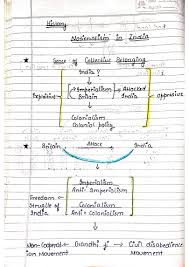 History
Nationalism in India
★ Sense of Collective Belonging
India ?
Oppressive Imperialism Attacked Oppressive
Britain India
Colonialism
Colonial policy
★ Britain Attack India
Imperialism
Anti Imperialism
Freedom Colonialism
Struggle of Anti-Colonialism
India
Non-Cooperat- Gandhi ji Civil disobedience
ion Movement Movement